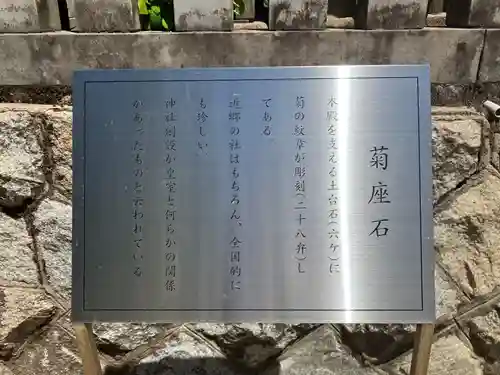 菊座石
本殿を支える土台石(六ケ)に
菊の紋章が彫刻(二十八弁)し
てある
近郷の社はもちろん、全国的に
も珍しい
神社創設が皇室と何らかの関係
があったものと云われている